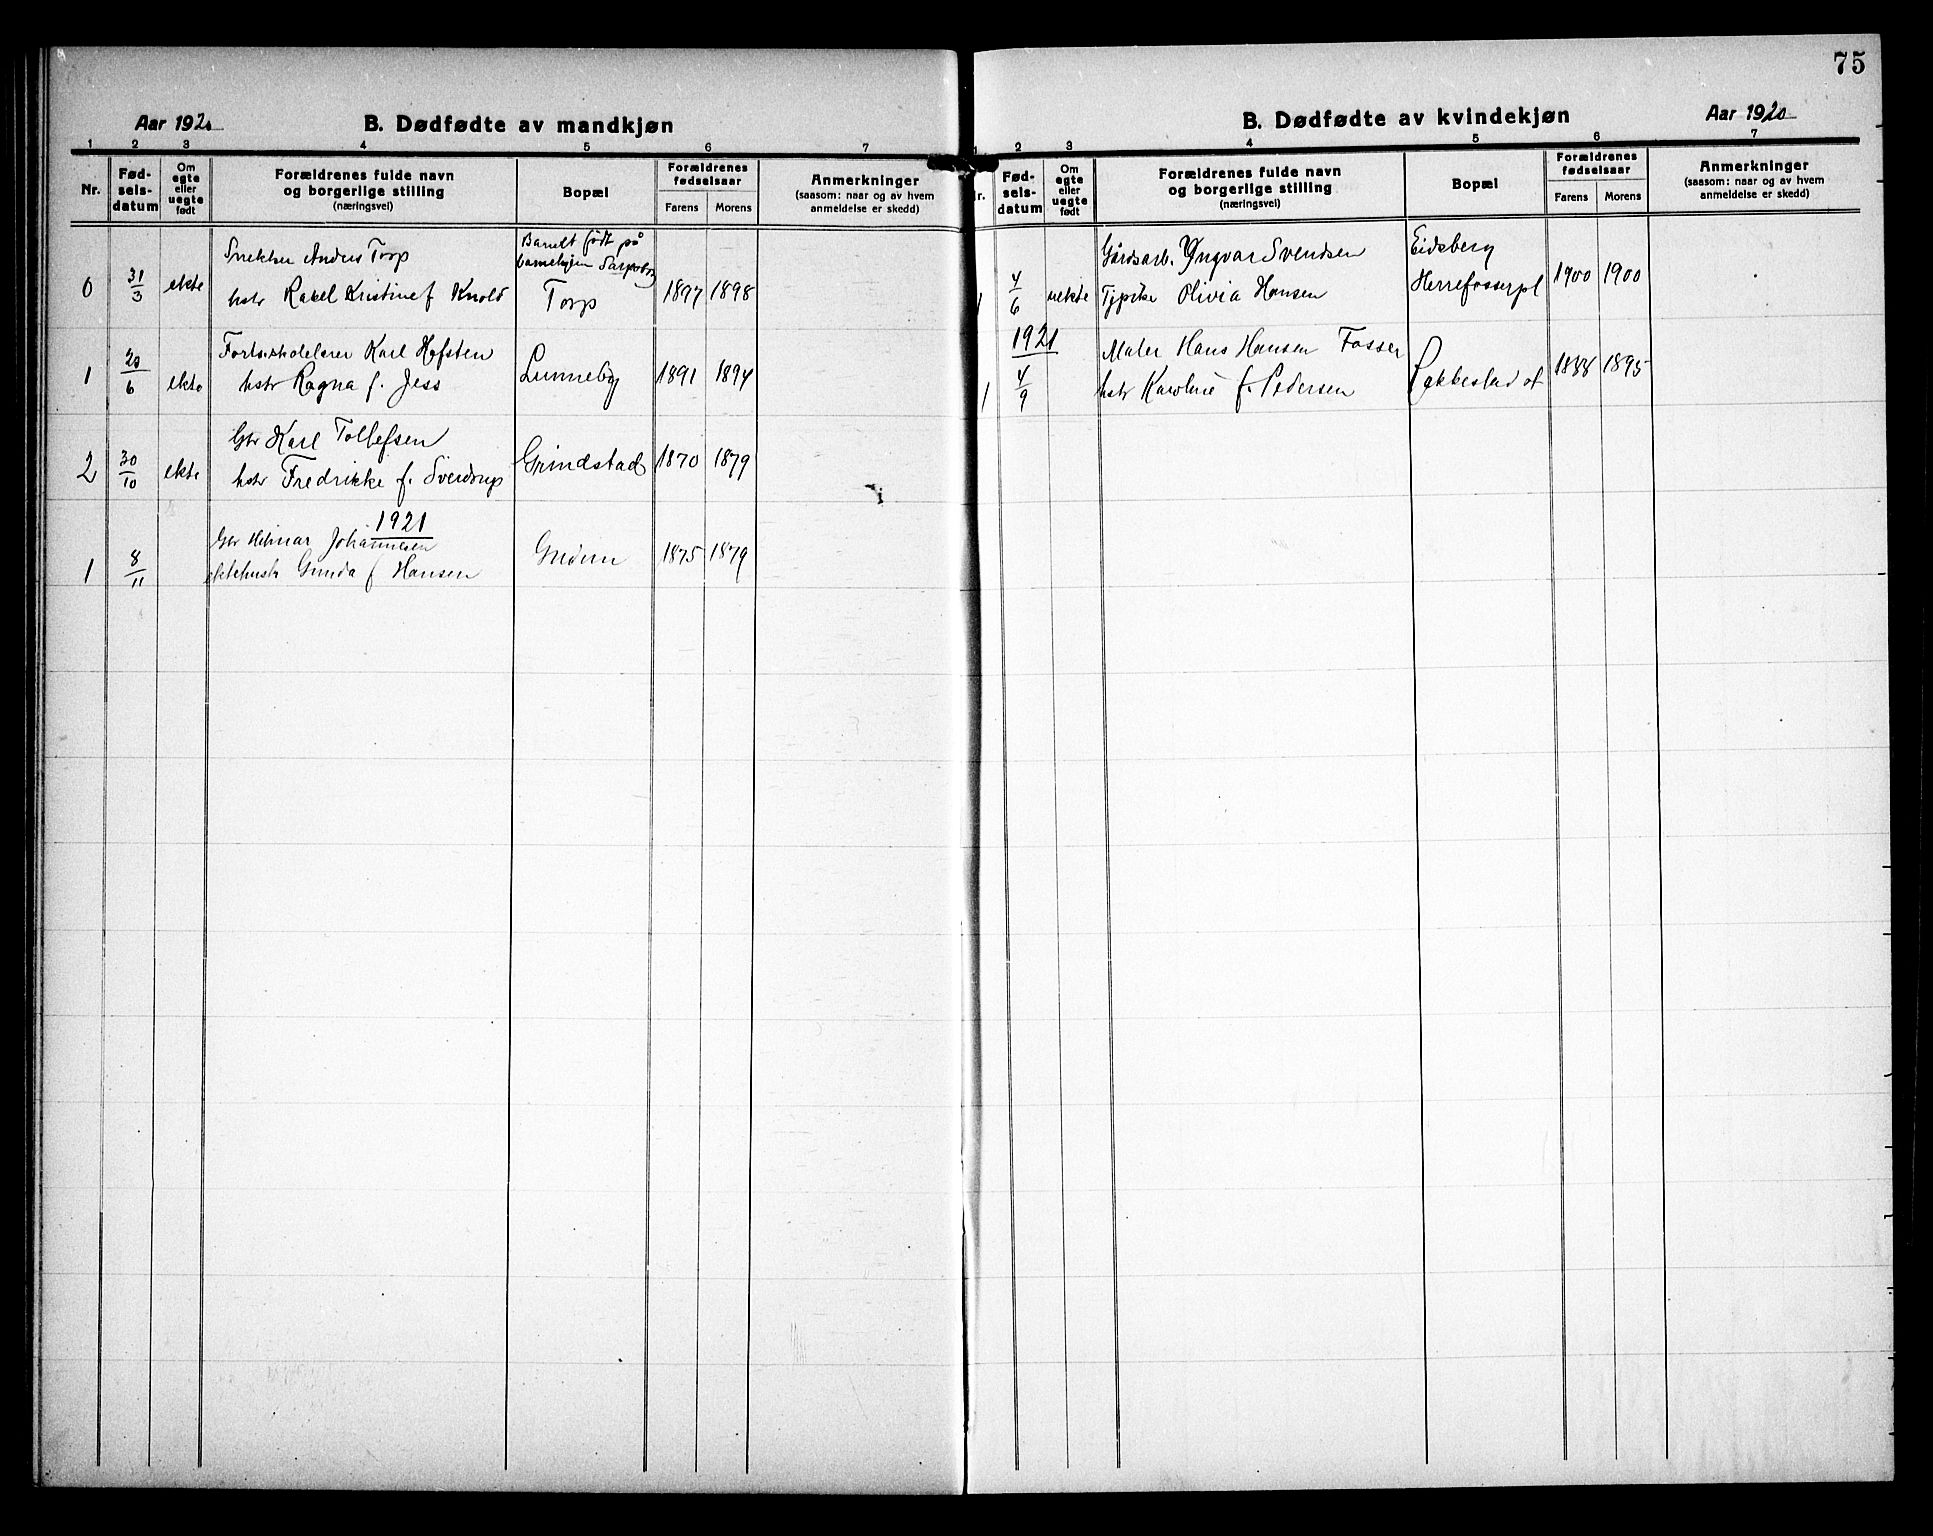 75
Aar 1920
B. Dødfødte av mandkjøn
1 2 3 4 5 6 7
Nr.
Fød-
selsdatum
Om egte eller uegte født
Forældrenes fulde navn
og borgerlige stilling
(næringsvei)
Bopæl
Forældrenes fødselsaar
Farens Morens
Anmerkninger
(saasom: naar og av hvem
anmeldelse er skedd)
0 31/3 ekte
Snekker Anders Torp
hstr Rakel Kristine f Knold
Barnet født på
Sarpsborg
Torp
1897 1898
1 20/6 ekte
Karl Hofsten
hstr Ragna f. Jess
Lunneby
1891 1894
2 30/10 ekte
Gbr Karl Tollefsen
hstr Fredrikke f. Sverdrup
Grindstad
1870 1879
1921
1 8/11
Gbr Hilmar Johannesen
ektehustr Gunda f Hansen
Gudim
1875 1879
B. Dødfødte av kvindekjøn
Aar 1920
1 2 3 4 5 6 7
Fød-
selsdatum
Om egte eller uegte født
Forældrenes fulde navn
og borgerlige stilling
(næringsvei)
Bopæl
Forældrenes fødselsaar
Farens Morens
Anmerkninger
(saasom: naar og av hvem
anmeldelse er skedd)
1 4/6 uekte
Gårdsarb. Yngvar Svendsen
Tjpike Olivia Hansen
Eidsberg
Herrefosserpl
1900 1900
1921
1 4/9
Maler Hans Hansen Fosser
hstr Karoline f. Pedersen
Rakkestad st
1888 1895